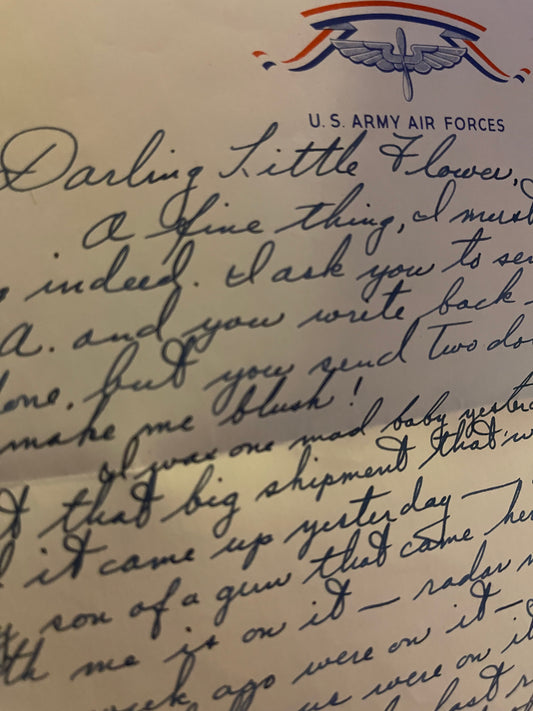 U. S. ARMY AIR FORCES
Darling Little Flower,
A fine thing, I must
indeed. I ask you to sen
A. and you write back
one, but you send two do
make me blush!
I was one mad baby yester
t that big shipment that w
it came up yesterday —
son of a gun that came her
th me is on it — radar
week ago were on it —
us were on it
last